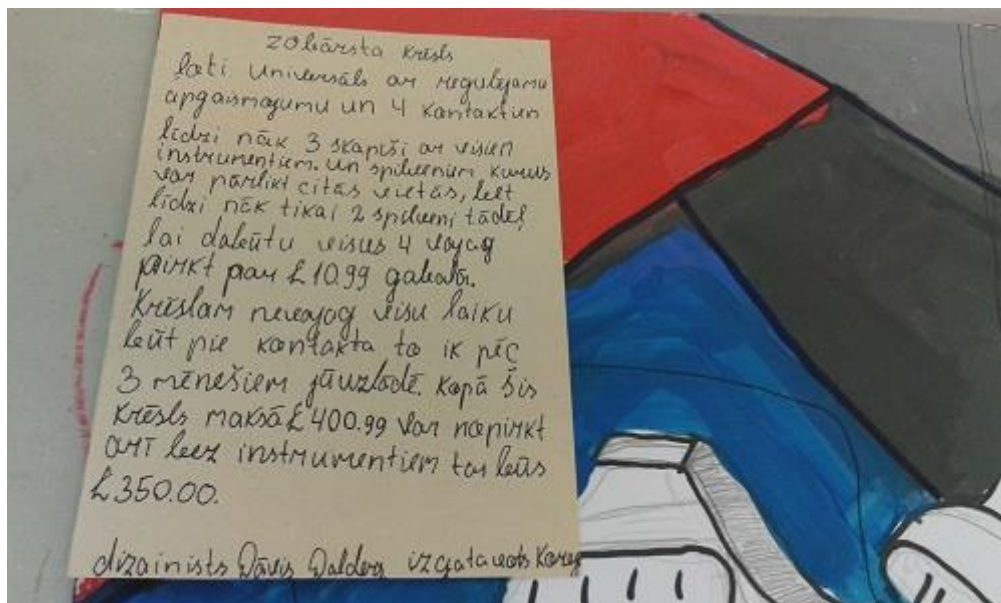 zobārsta krēsls
ļoti Universāls ar regulējamu
apgaismojumu un 4 kontaktiem
līdzi nāk 3 skapīši ar visiem
instrumentiem. Un spilveniem kurus
var pārlikt citās vietās, bet
līdzi nāk tikai 2 spilveni tādēļ
lai dabūtu visus 4 vajag
pirkt par £10.99 gabalā.
Krēslam nevajag visu laiku
būt pie kontakta to ik pēc
3 mēnešiem jāuzlādē. Kopā šis
krēsls maksā £400.99 Var nopirkt
arī bez instrumentiem tas būs
£350.00.
dizainists Dāvis izgatavots